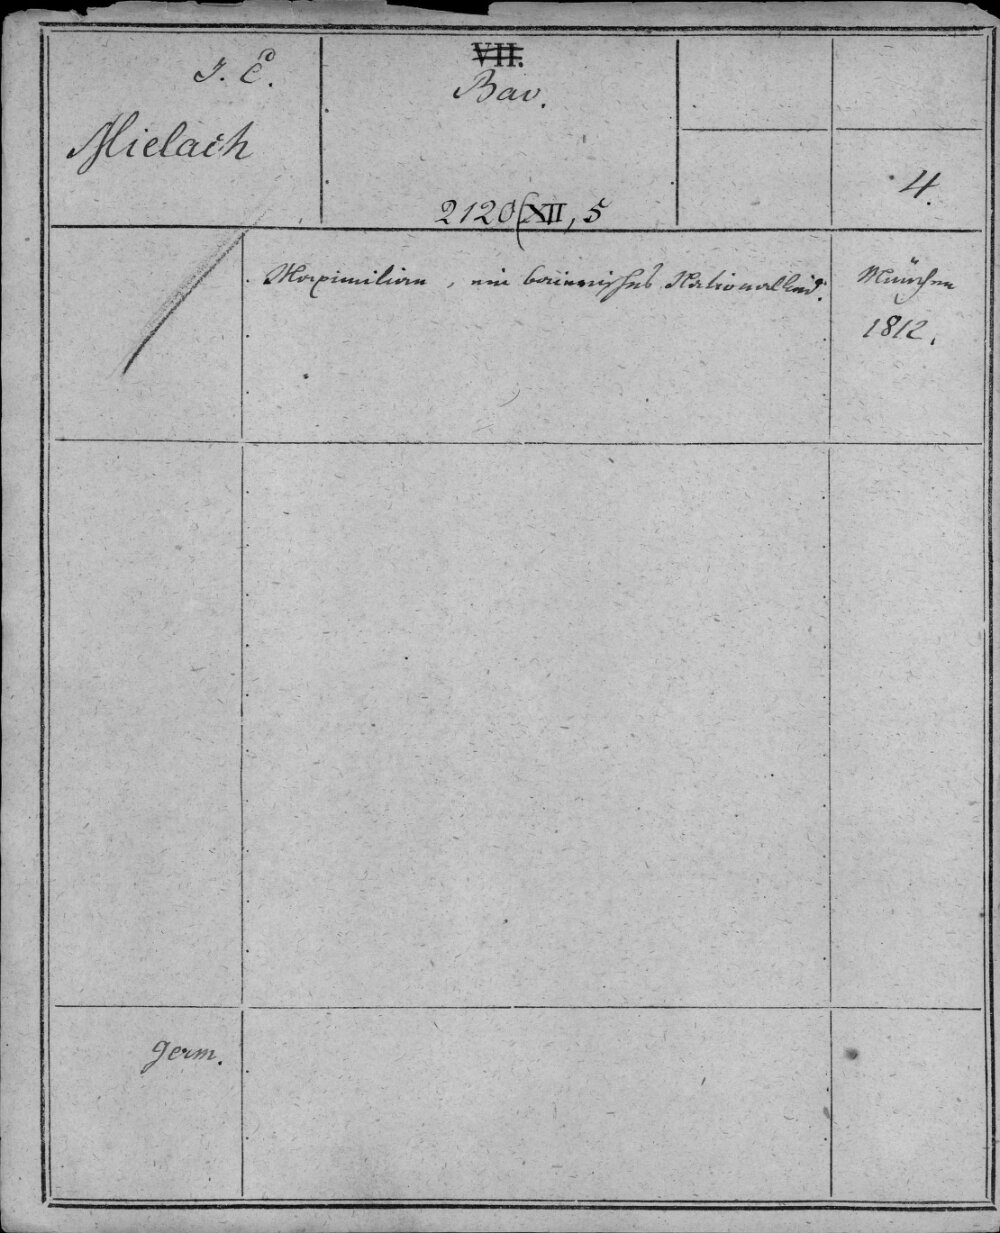 J. E.
Mielach
VII.
Bav.
2120(XII, 5
4.
Maximilian, ein baierisches Nationallied.
München
1812.
germ.